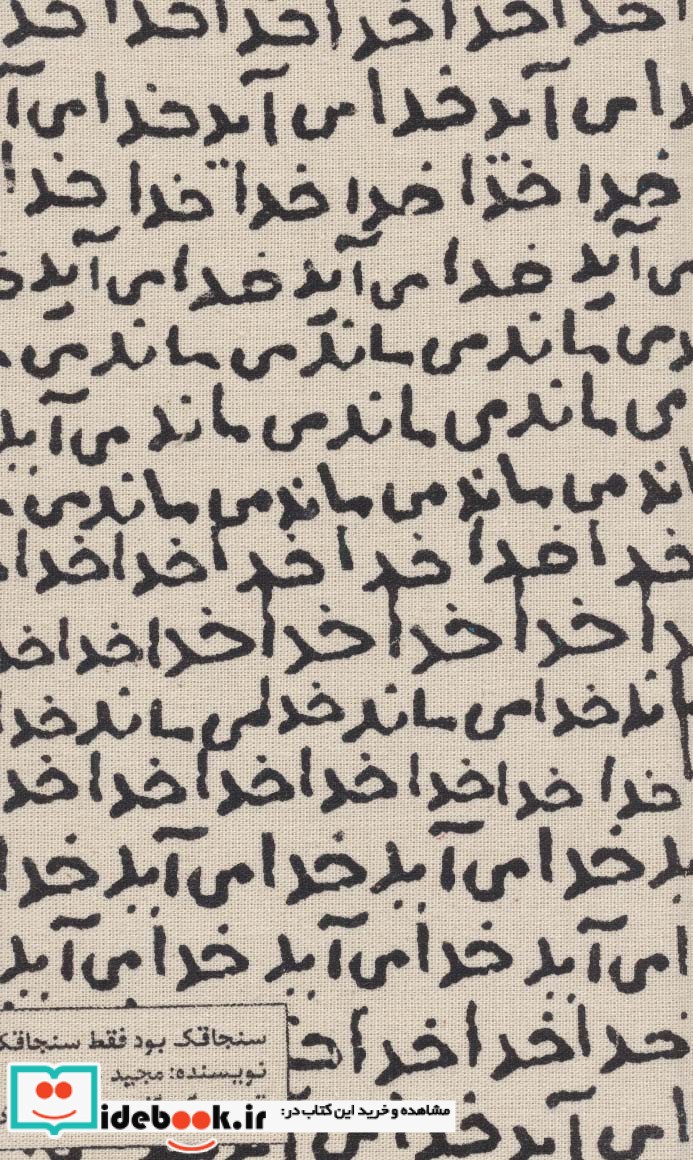 خدا خدا خدا خدا خدا خدا
ا می آید خدا می آید خدا می آ
خدا خدا خدا خدا خدا خد
می آید خدا می آید خدا می آید
می ماند می ماند می ماند می
می ماند می ماند می ماند می آید
ماند می ماند می ماند می ماند می
خدا خدا خدا خدا خدا خدا
خدا خدا خدا خدا خدا خد
ماند خدا می ماند خدا می ماند خدا
خدا خدا خدا خدا خدا خدا خد
ید خدا می آید خدا می آید خدا
ا می آید خدا می آید خدا می آید
خدا خدا خدا خد
سنجاقک بود فقط سنجاقک
نویسنده: مجید
مشاهده و خرید این کتاب در:
idebook.ir